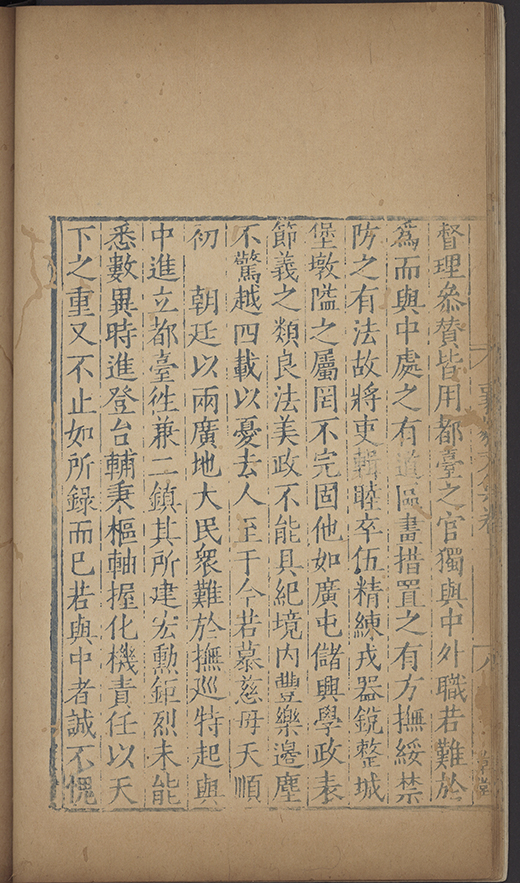 督理叅賛皆用都臺之官獨與中外職若難於
爲而與中處之有道區畫措置之有方撫綏禁
防之有法故將吏輯睦卒伍精練戎器銳整城
堡墩隘之屬罔不完固他如廣屯儲興學政表
節義之類良法美政不能具紀境内豐樂邊塵
不驚越四載以憂去人至于今若慕慈母天順
初　朝廷以兩廣地大民衆難於撫廵特起與
中進立都臺徃兼二鎮其所建宏勳鉅烈未能
悉數異時進登台輔秉樞軸握化機責任以天
下之重又不止如所録而已若與中者誠不愧